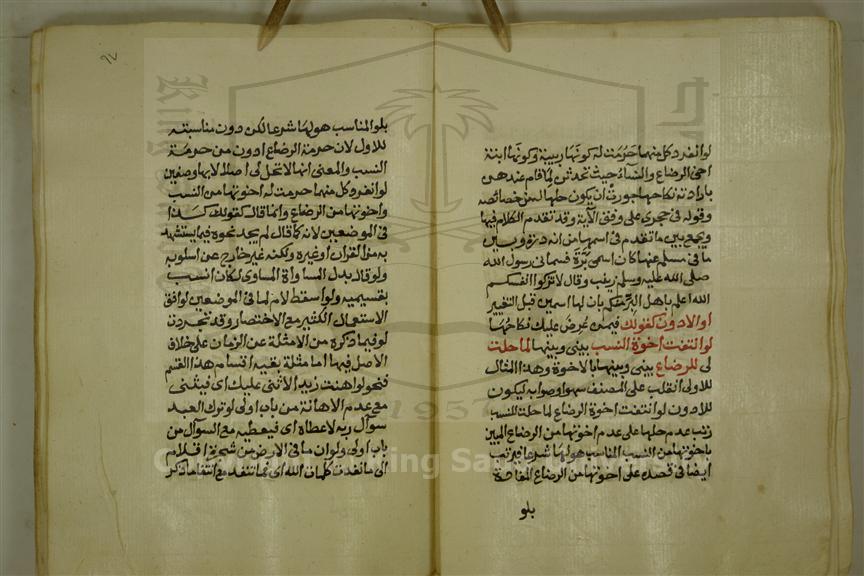 لو انفرد كل منهما حرمت له كونها ربيبة وكونها ابنة
اخي الرضاع والنساء حيث تحدثن لما قام عندهن
بارادته نكاحها جوزن أن يكون حلها له من خصائصه
وقوله في حجري على وفق الآية وقد تقدم الكلام فيها
ويجمع بين ما تقدم في اسمها من انه درة وبين
ما في مسلم عنها كان اسمي برة فسماني رسول الله
صلى الله عليه وسلم زينب وقال لا تزكوا انفسكم
الله اعلم باهل البر منكم بان لها اسمين قبل التغيير
او الادون كقولك فيمن عرض عليك نكاحها
لو انتفت اخوة النسب بيني وبينها لما حلت
لي للرضاع بيني وبينها بالاخوة وهذا المثال
للاولى انقلب على المصنف سهوا وصوابه ليكون
للادون لو انتفت اخوة الرضاع لما حلت للنسب
رتب عدم حلها على عدم اخوتها من الرضاع المبين
باخوتها من النسب المناسب هو لها شرعا فيرتب
ايضا في قصده على اخوتها من الرضاع المفادة
بلو
بلو المناسب هو لها شرعا لكن دون مناسبته
للاول لان حرمة الرضاع ادون من حرمة
النسب والمعنى انها لا تحل لي اصلا لان بها وصفين
لو انفرد كل منهما حرمت له اخوتها من النسب
واخوتها من الرضاع وانما قال كقولك كذا
في الموضعين لانه كما قال لم يجد نحوه فيما يستشهد
به من القران او غيره ولكنه غير خارج عن اسلوبه
ولو قال بدل المساواة المساوى لكان انسب
بقسيميه ولو اسقط لام لما في الموضعين لوافق
الاستعمال الكثير مع الاختصار وقد تجردت
لو فيما ذكره من الامثلة عن الزمان على خلاف
الاصل فيها اما مثلة بقية اقسام هذا القسم
فنحو لو اهنت زيدا لاثنى عليك اي فيثني
مع عدم الاهانة من باب اولى لو ترك العبد
سوال ربه لاعطاه اي فيعطيه مع السوال من
باب اولى ولو ان ما في الارض من شجرة اقلام
الى ما نفدت كلمات الله اي فما تنفد مع انتفا ما ذكر